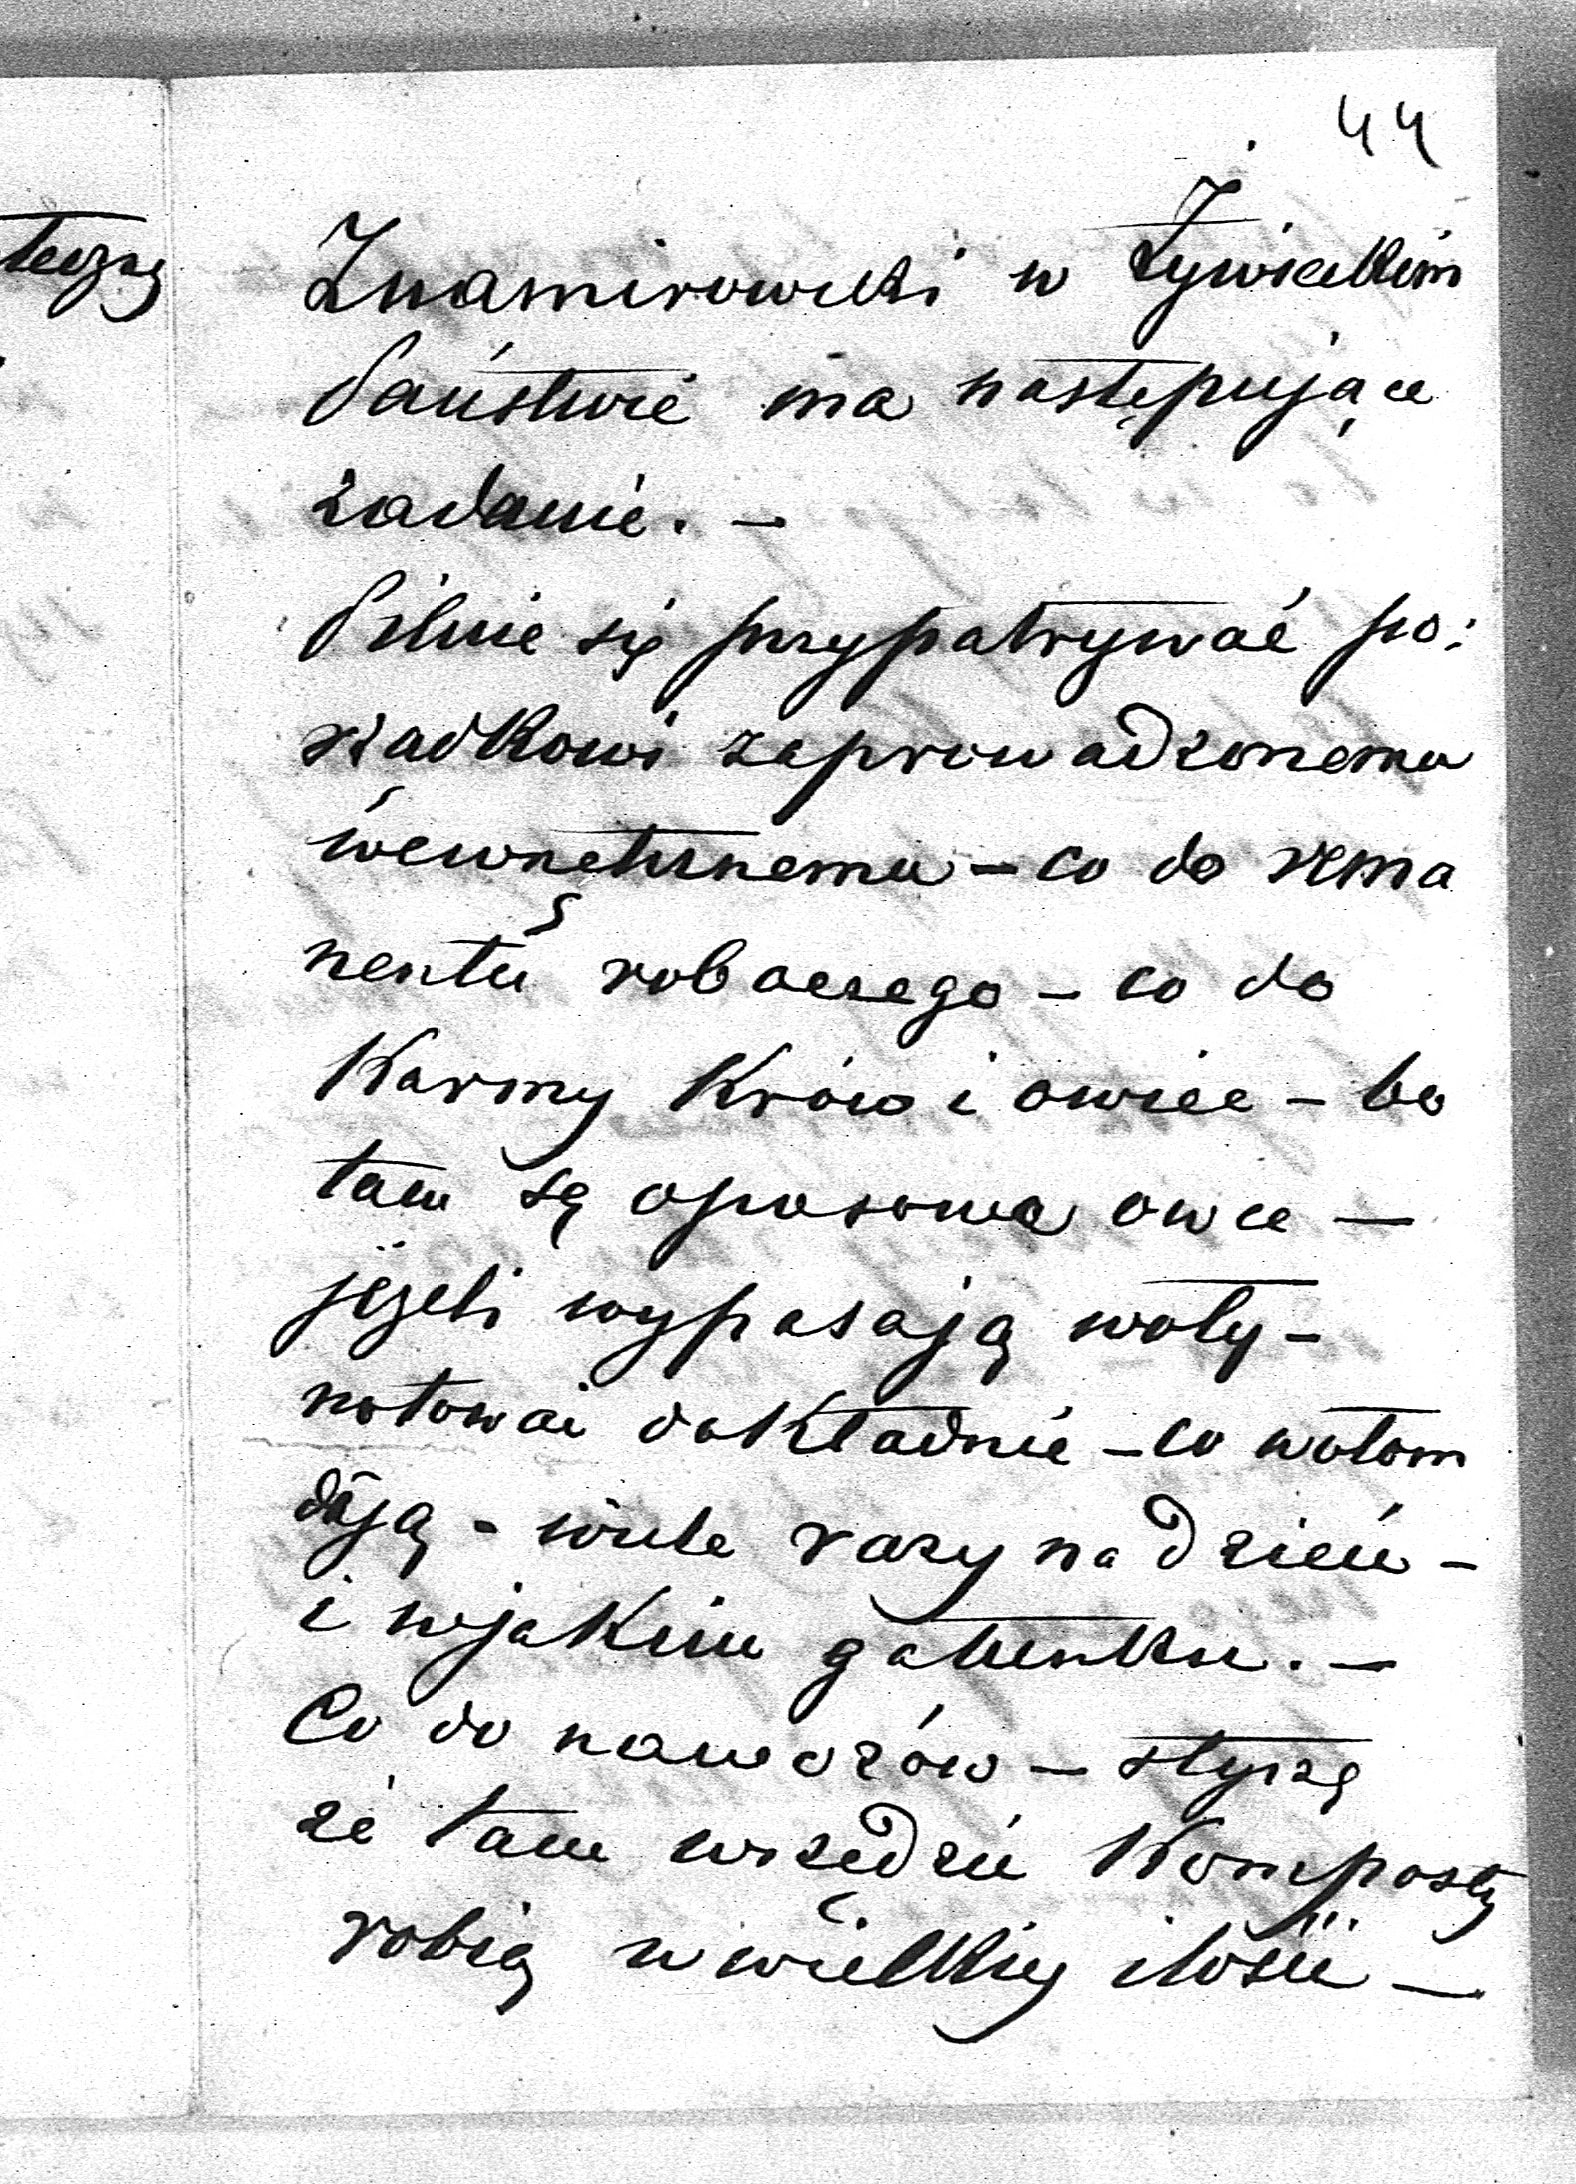 44
Znamirowski w Żywieckim
Państwie ma następujące
zadanie. —
Pilnie się przypatrywać po:
rzadkowi zaprowadzonemu
wewnetrznemu – co do rema
nentu roboczego – co do
Karmy Krów i owiec – bo
tam są opasowe owce —
jeżeli wypasają woły –
notować dokładnie – co wołom
dają – wiele razy na dzień –
i wjakim gatunku. —
Co do nawozów — słyszę
że tam wszędzie Komposty
robią w wielkiej ilości —